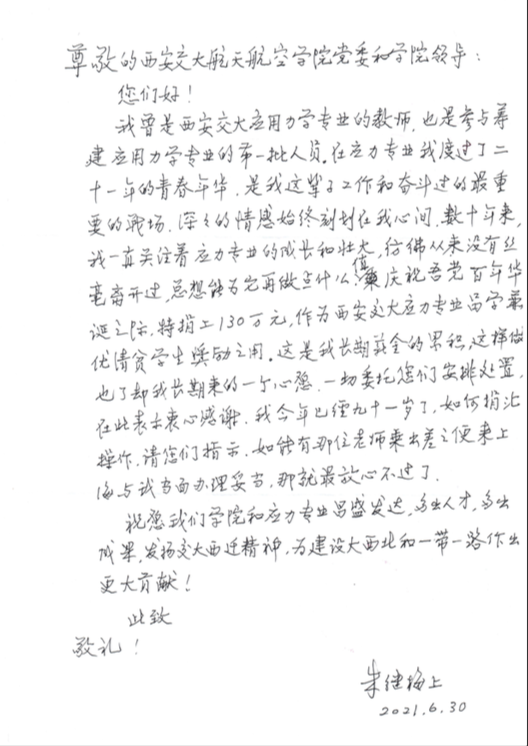 尊敬的西安交大航天航空学院党委和学院领导：
您们好！
我曾是西安交大应用力学专业的教师，也是参与筹
建应用力学专业的第一批人员。在应力专业我度过了二
十一年的青春年华，是我这辈子工作和奋斗过的最重
要的战场，深深的情感始终刻划在我心间，数十年来，
我一直关注着应力专业的成长和壮大，仿佛从来没有丝
毫离开过，总想能为它再做点什么，值兹庆祝吾党百年华
诞之际，特捐上130万元，作为西安交大应力专业品学兼
优清贫学生奖励之用。这是我长期薪金的累积，这样做
也了却我长期来的一个心愿，一切委托您们安排处置，
在此表示衷心感谢，我今年已经九十一岁了，如何捐汇
操作，请您们指示，如能有那位老师乘出差之便来上
海与我当面办理妥当，那就最放心不过了。
祝愿我们学院和应力专业昌盛发达，多出人才，多出
成果，发扬交大西迁精神，为建设大西北和一带一路作出
更大贡献！
此致
敬礼！
朱继梅上
2021.6.30